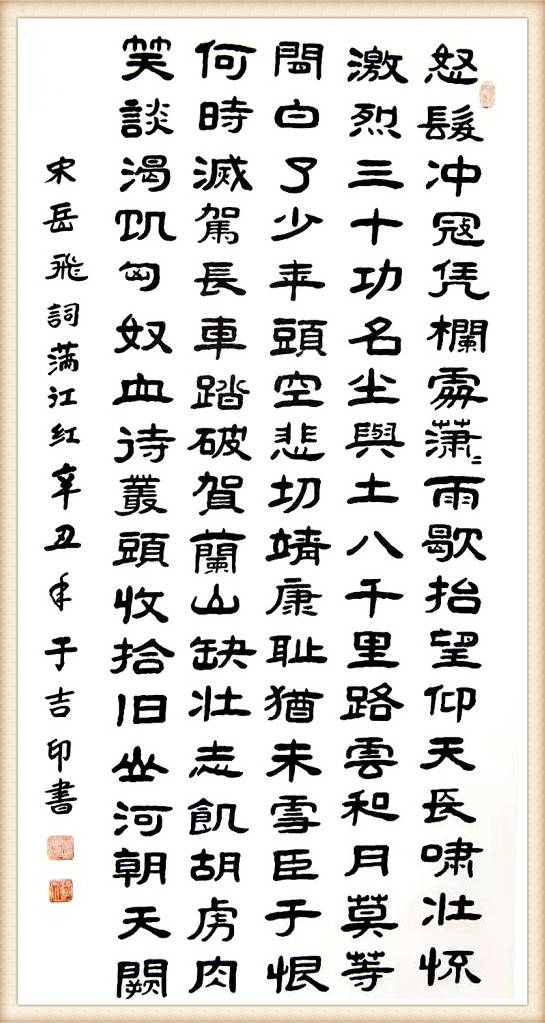 怒髮冲冠凭欄處萧〻雨歇抬望仰天長啸壮怀
激烈三十功名尘與土八千里路雲和月莫等
閒白了少年頭空悲切靖康耻猶未雪臣子恨
何時滅駕長車踏破賀蘭山缺壮志飢胡虏肉
笑談渴饥匈奴血待叢頭收拾旧山河朝天闕
宋岳飛詞满江红辛丑年于吉印書